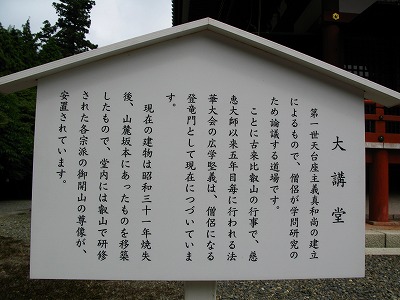 大講堂
第一世天台座主義真和尚の建立
によるもので、僧侶が学問研究の
ため論議する道場です。
ことに古来比叡山の行事で、慈
恵大師以来五年目毎に行われる法
華大会の広学竪義は、僧侶になる
登竜門として現在につづいていま
す。
現在の建物は昭和三十一年焼失
後、山麓坂本にあったものを移築
したもので、堂内には叡山で研修
された各宗派の御開山の尊像が、
安置されています。